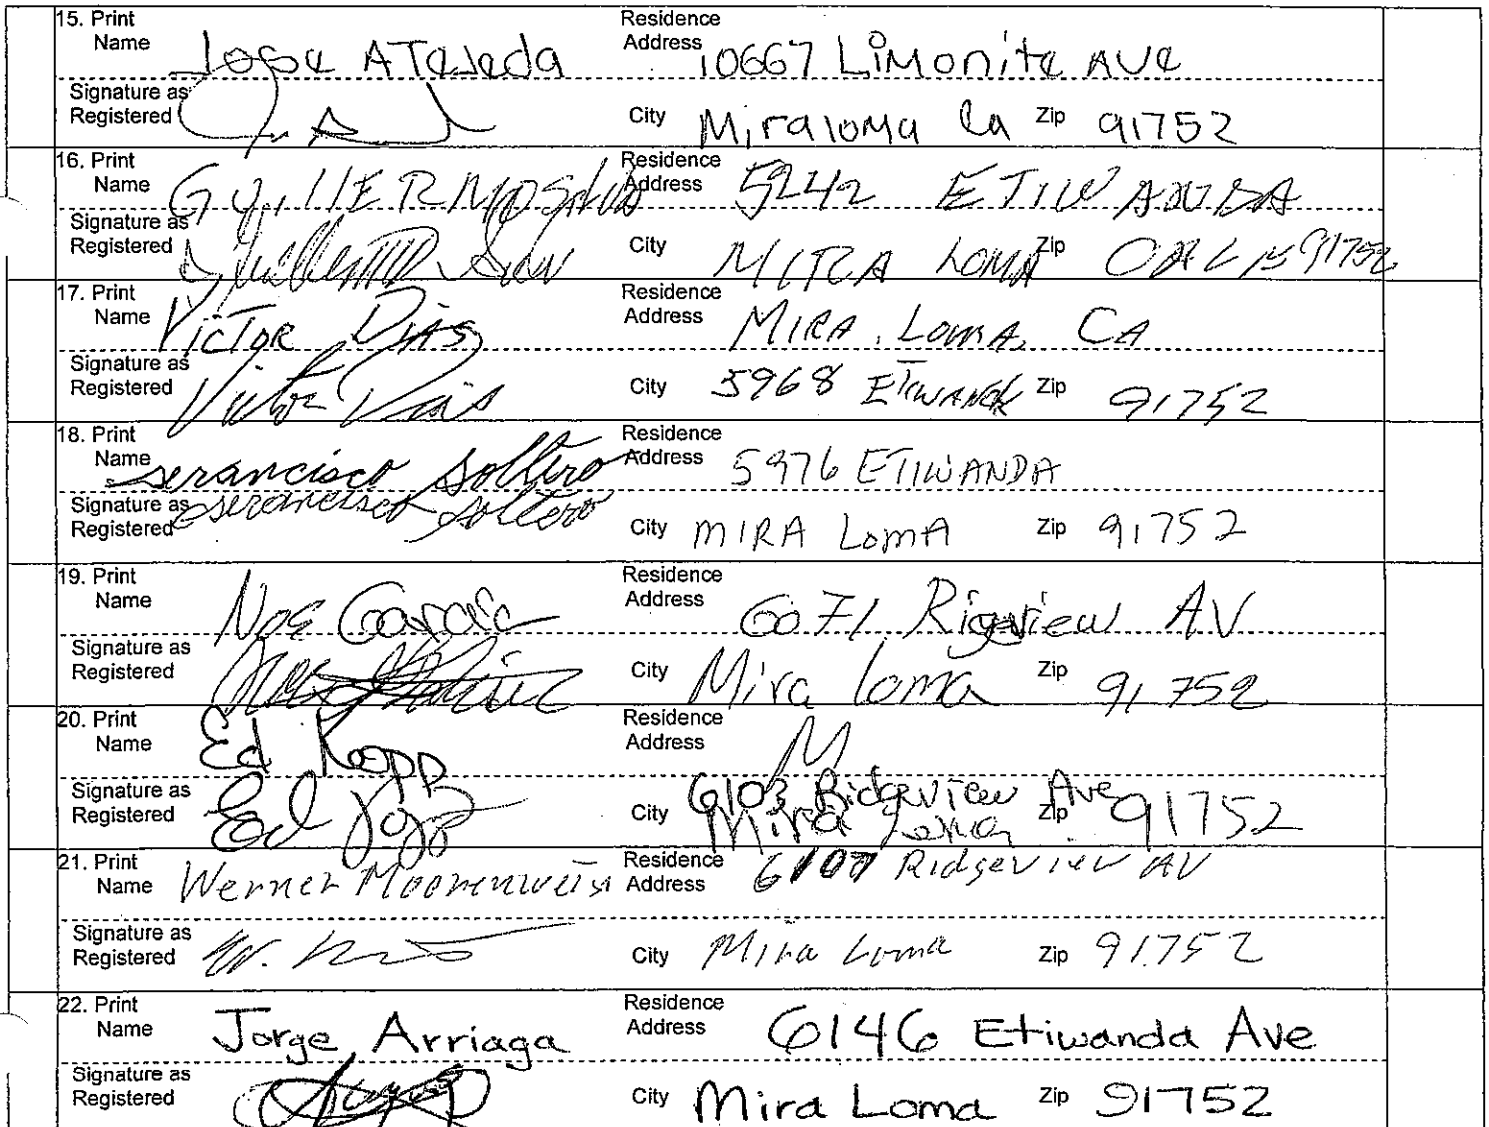 15. Print Name Jose A Tejeda Residence Address 10667 Limonite Ave
Signature as Registered City Miraloma Ca Zip 91752
16. Print Name GUILLERMO SILVA Residence Address 5242 ETIWANDA
Signature as Registered City MIRA LOMA Zip CALIF 91752
17. Print Name VICTOR DIAS Residence Address MIRA LOMA, CA
Signature as Registered Victor Dias City 5968 ETIWANDA Zip 91752
18. Print Name serancisco Soltero Residence Address 5976 ETIWANDA
Signature as Registered serancisco Soltero City MIRA LOMA Zip 91752
19. Print Name Noe Garcia Residence Address 6071 Rigeview AV
Signature as Registered City Mira loma Zip 91752
20. Print Name Ed Kopp Residence Address M
Signature as Registered Ed Kopp City 6103 Ridgeview Ave Mira Loma Zip 91752
21. Print Name Werner Residence Address 6107 Ridgeview AV
Signature as Registered City Mira Loma Zip 91752
22. Print Name Jorge Arriaga Residence Address 6146 Etiwanda Ave
Signature as Registered City Mira Loma Zip 91752